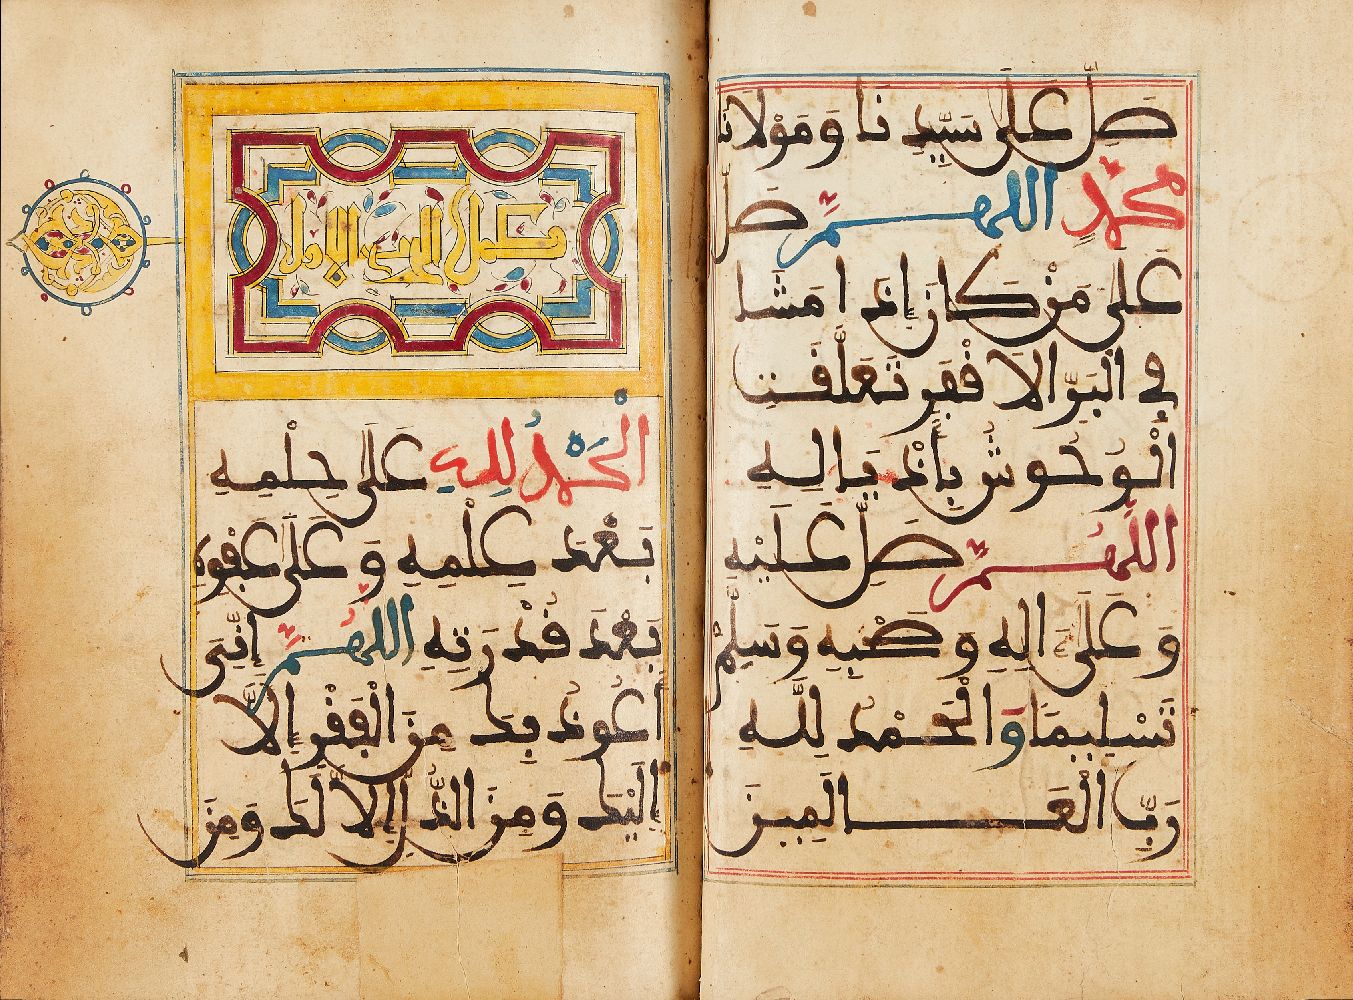 صَلِّ عَلَى سَيِّدِنَا وَمَوْلَانَا
مُحَمَّدٍ اللَّهُمَّ صَلِّ
عَلَى مَنْ كَانَ إِذَا مَشَى
فِي الْبَرِّ الْأَقْفَرِ تَعَلَّقَتِ
الْوُحُوشُ بِأَذْيَالِهِ
اللَّهُمَّ صَلِّ عَلَيْهِ
وَعَلَى آلِهِ وَصَحْبِهِ وَسَلِّمْ
تَسْلِيمًا وَالْحَمْدُ لِلَّهِ
رَبِّ الْعَالَمِينَ
كمل الحزب الأول
الْحَمْدُ لِلَّهِ عَلَى حِلْمِهِ
بَعْدَ عِلْمِهِ وَعَلَى عَفْوِهِ
بَعْدَ قُدْرَتِهِ اللَّهُمَّ إِنِّي
أَعُوذُ بِكَ مِنَ الْفَقْرِ إِلَّا
إِلَيْكَ وَمِنَ الذُّلِّ إِلَّا لَكَ وَمِنَ